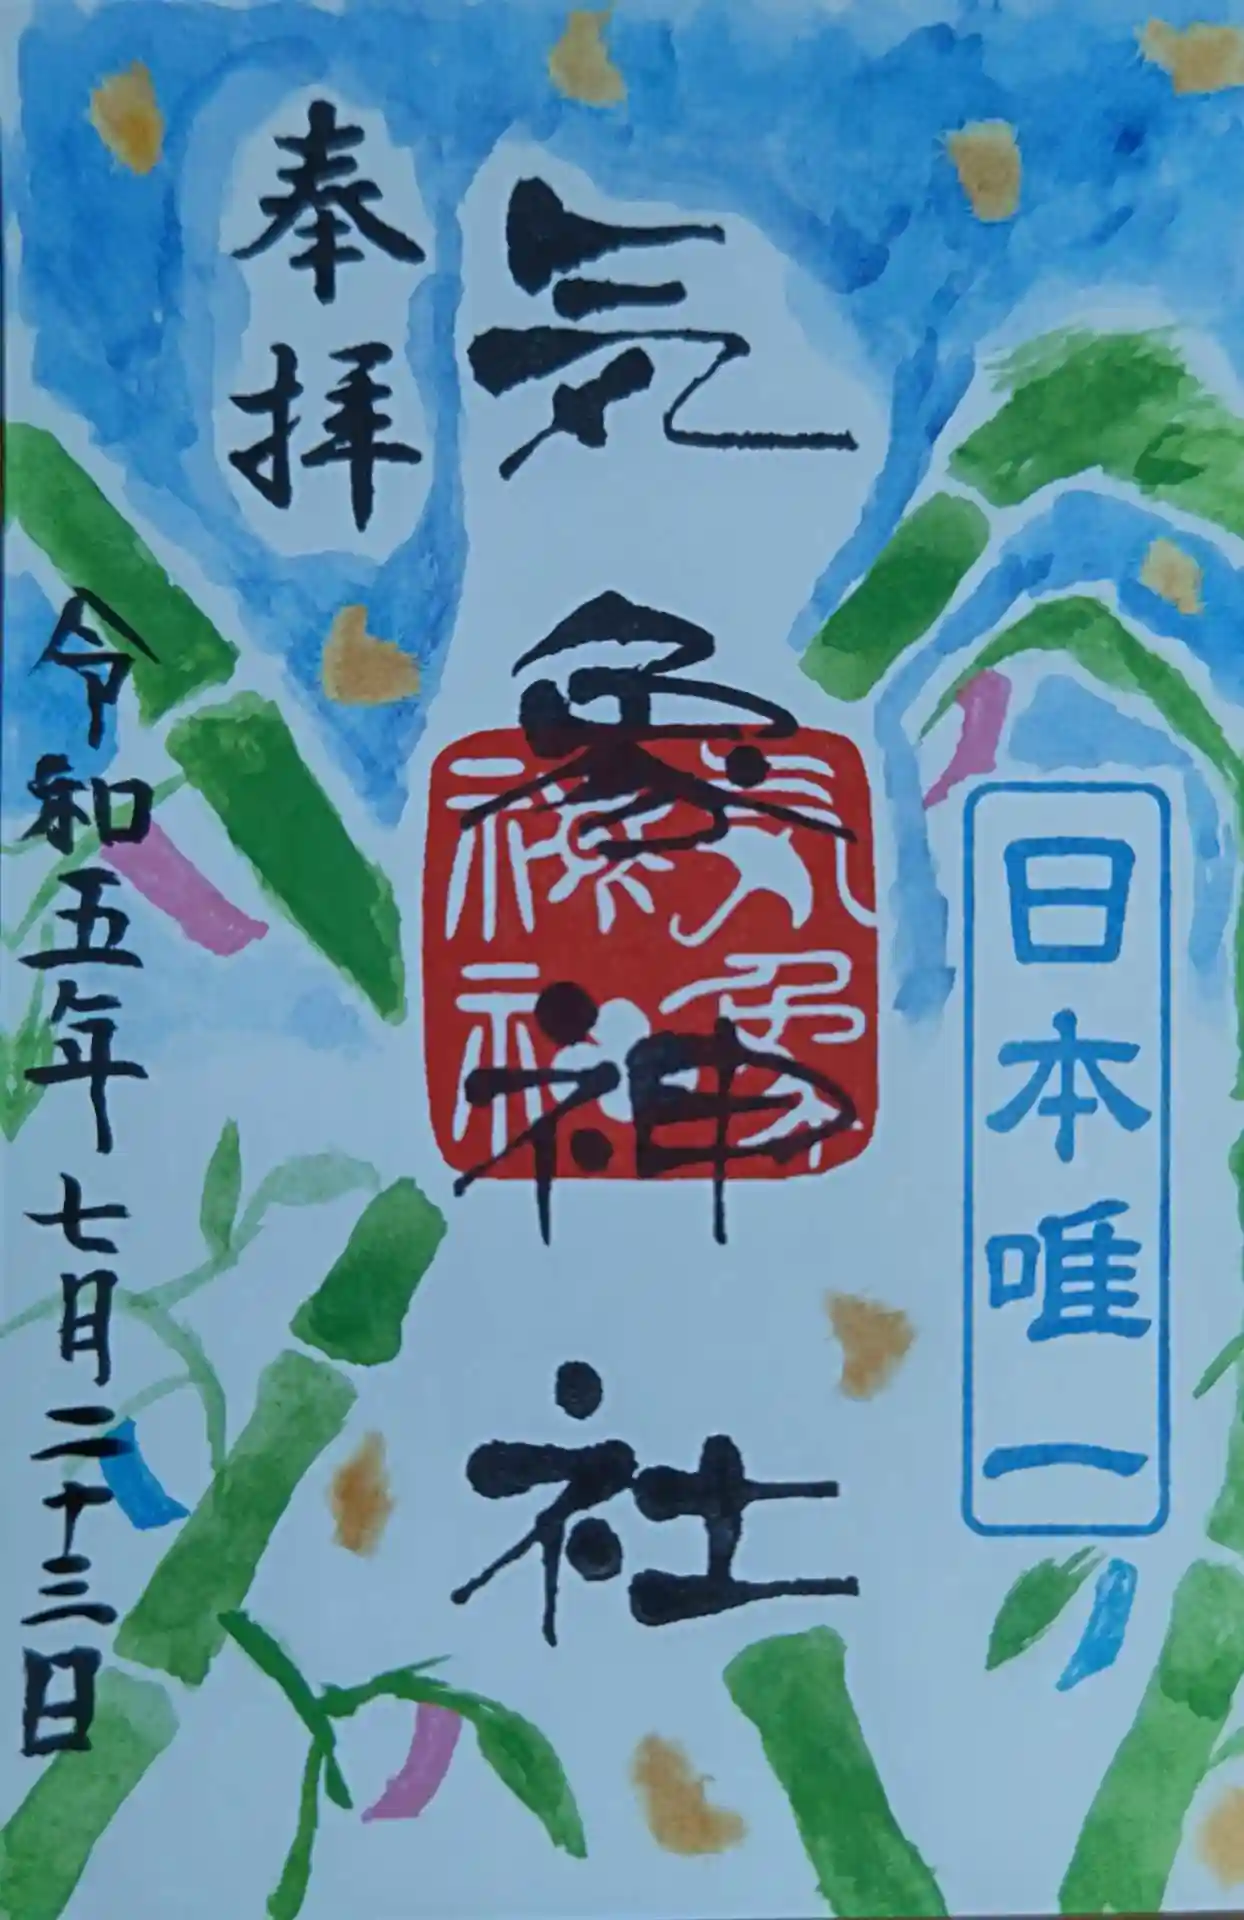 日本唯一
気象神社
気象神社
奉拝
令和五年七月二十三日